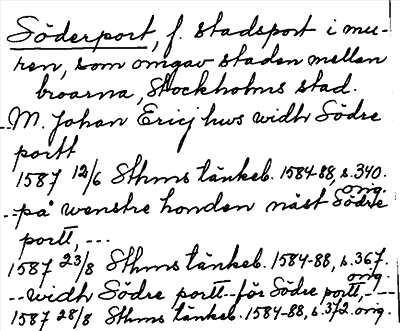 Söderport, f. stadsport i mu-
ren, som omgav staden mellan
broarna, Stockholms stad.
--M. Johan Ericj hws widh Södre
portt
1587 12/6 Sthms tänkeb. 1584-88, s. 340.
orig.
--på wenstre honden näst Södre
portt, -.-
1587 23/8 Sthms tänkeb. 1584-88, s. 367.
orig.
--widh Södre portt--för Södre portt,---
1587 28/8 Sthms tänkeb. 1584-88, s. 372. orig.